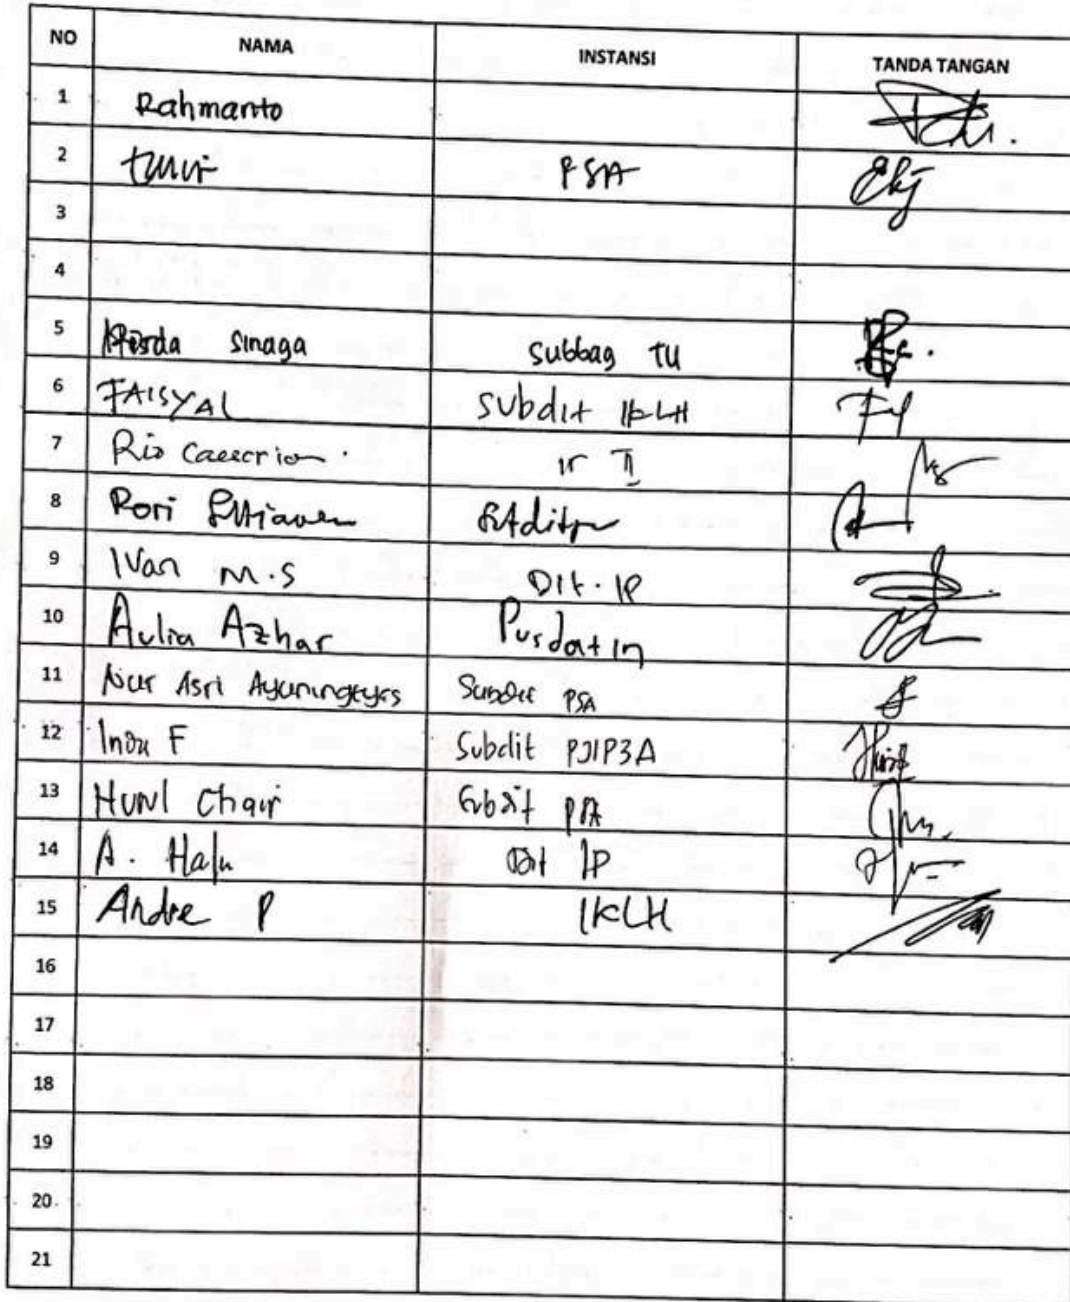 NO NAMA INSTANSI TANDA TANGAN
1 Rahmanto
2 PSA
3
4
5 Sinaga Subbag TU
6 FAISYAL Subdit IKLH
7 Rio II
8 Rori
9 Ivan M.S Dit. IP
10 Aulia Azhar Pusdatin
11 Nur Asri Ayuningtyas Subdit PSA
12 Indu F Subdit PJIP3A
13 Chair Subdit PSA
14 A. Dit IP
15 Andre P IKLH
16
17
18
19
20
21